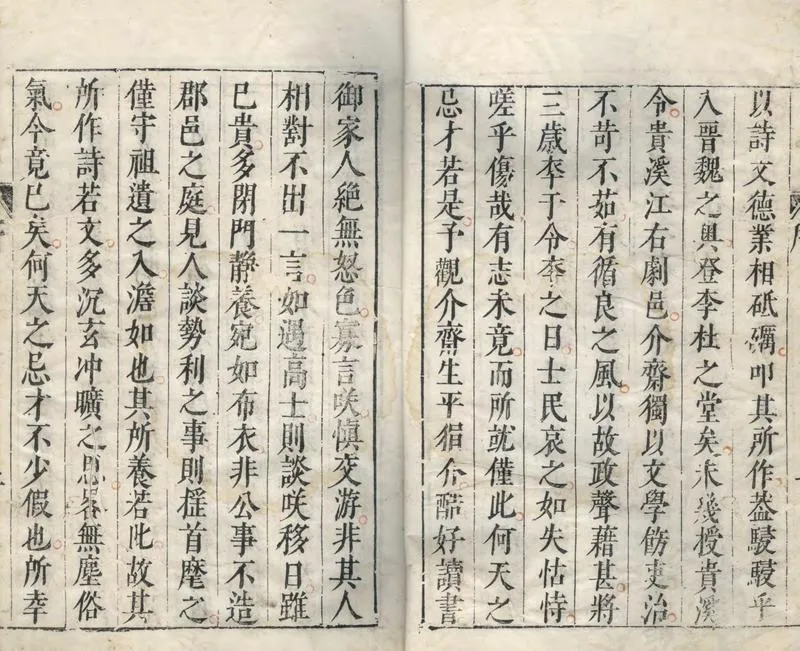 以詩文德業相砥礪叩其所作葢駸駸乎
入晉魏之奥登李杜之堂矣未幾授貴溪
令貴溪江右劇邑介齋獨以文學飭吏治
不苛不茹有循良之風以故政聲藉甚將
三歲卒于令卒之日士民哀之如失怙恃
嗟乎傷哉有志未竟而所就僅此何天之
忌才若是予觀介齋生平狷介酷好讀書
御家人絶無怒色寡言咲慎交游非其人
相對不出一言如遇高士則談咲移日雖
已貴多閉門靜養宛如布衣非公事不造
郡邑之庭見人談勢利之事則揺首麾之
僅守祖遺之入澹如也其所養若此故其
所作詩若文多沉玄冲曠之思畧無塵俗
氣今竟已矣何天之忌才不少假也所幸